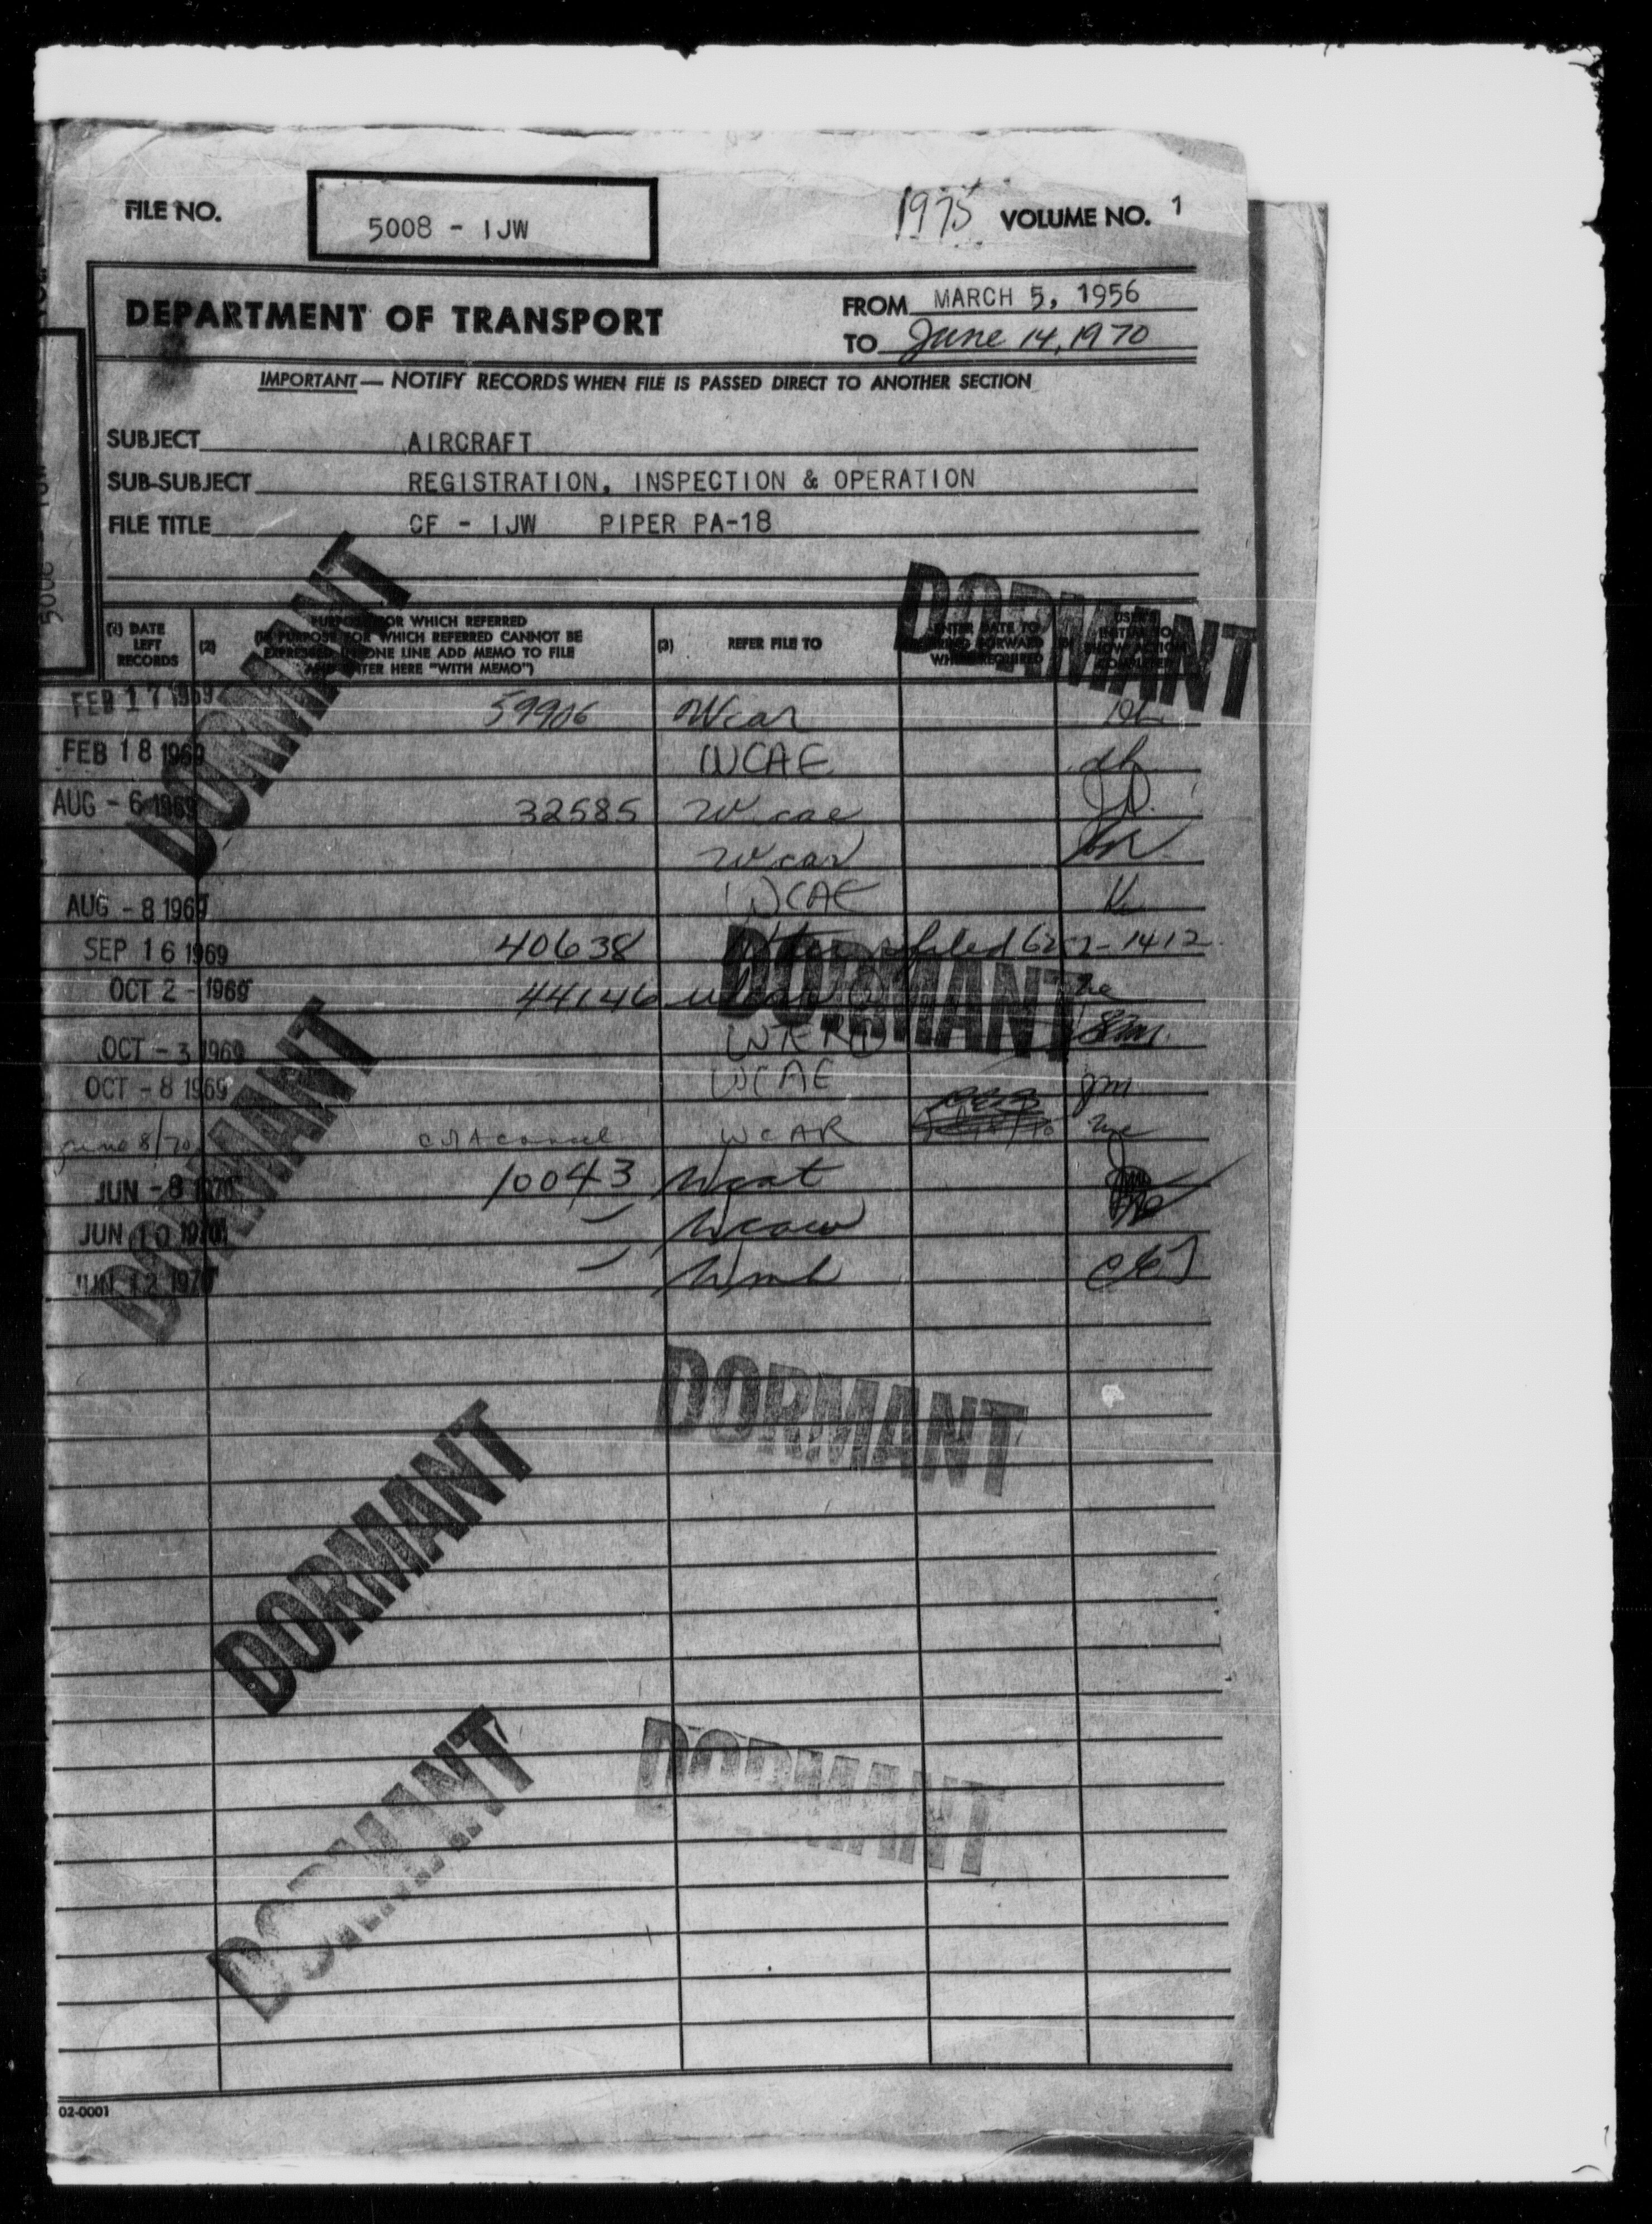 FILE NO.
5008 - IJW
1975 VOLUME NO. 1
DEPARTMENT OF TRANSPORT
FROM MARCH 5, 1956
TO June 14, 1970
IMPORTANT — NOTIFY RECORDS WHEN FILE IS PASSED DIRECT TO ANOTHER SECTION
SUBJECT AIRCRAFT
SUB-SUBJECT REGISTRATION, INSPECTION & OPERATION
FILE TITLE CF - IJW PIPER PA-18
5008
(1) DATE LEFT RECORDS
(2) PURPOSE FOR WHICH REFERRED
(IF PURPOSE FOR WHICH REFERRED CANNOT BE
EXPRESSED IN ONE LINE ADD MEMO TO FILE
AND ENTER HERE "WITH MEMO")
(3) REFER FILE TO
ENTER DATE TO
BRING FORWARD
WHEN REQUIRED
USER'S
INITIAL TO
SHOW ACTION
COMPLETED
DORMANT
DORMANT
FEB 17 1969 59906 Wcar
FEB 18 1969 WCAE dh
AUG - 6 1969 32585 Wcae
Wcar
AUG - 8 1969 WCAE
SEP 16 1969 40638 filed 6252-1412
DORMANT
OCT 2 - 1969 44146
OCT - 3 1969
OCT - 8 1969 WCAE gm
June 8/70 WCAR
DORMANT
JUN - 8 1970 10043 Wcat
JUN 10 1970 Wcaw
JUN 12 1970
DORMANT
DORMANT
DORMANT
DORMANT
02-0001